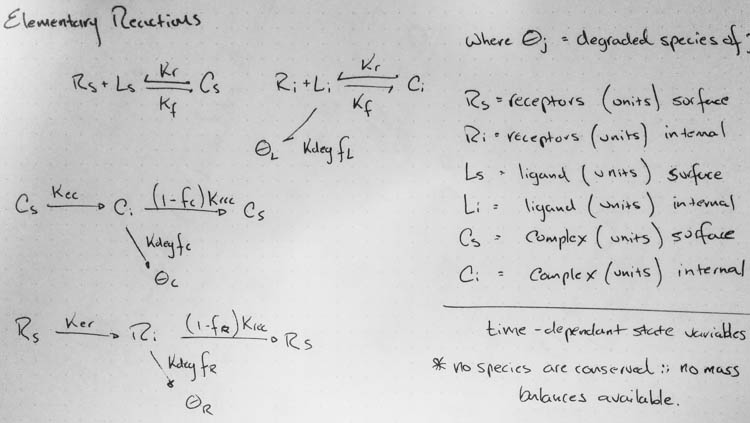 Elementary Reactions
Rs + Ls ⇌ Cs
Kr
Kf
Ri + Li ⇌ Ci
Kr
Kf
ΘL Kdeg fL
Cs Kec → Ci (1-fc)Krec → Cs
Kdeg fc
Θc
Rs Ker → Ri (1-fR)Krec → Rs
Kdeg fR
ΘR
where Θj = degraded species of j
Rs = receptors (units) surface
Ri = receptors (units) internal
Ls = ligand (units) surface
Li = ligand (units) internal
Cs = Complex (units) surface
Ci = Complex (units) internal
time-dependant state variables
* no species are conserved ∴ no mass
balances available.